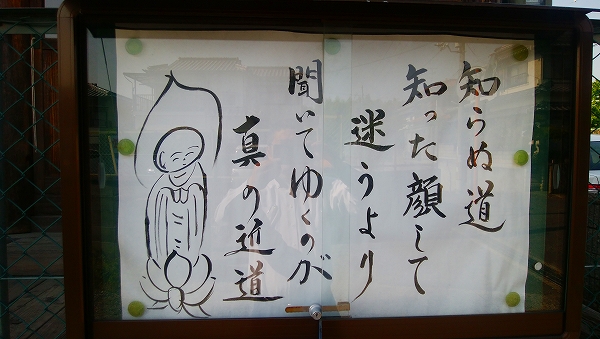 知らぬ道
知った顔して
迷うより
聞いてゆくのが
真の近道